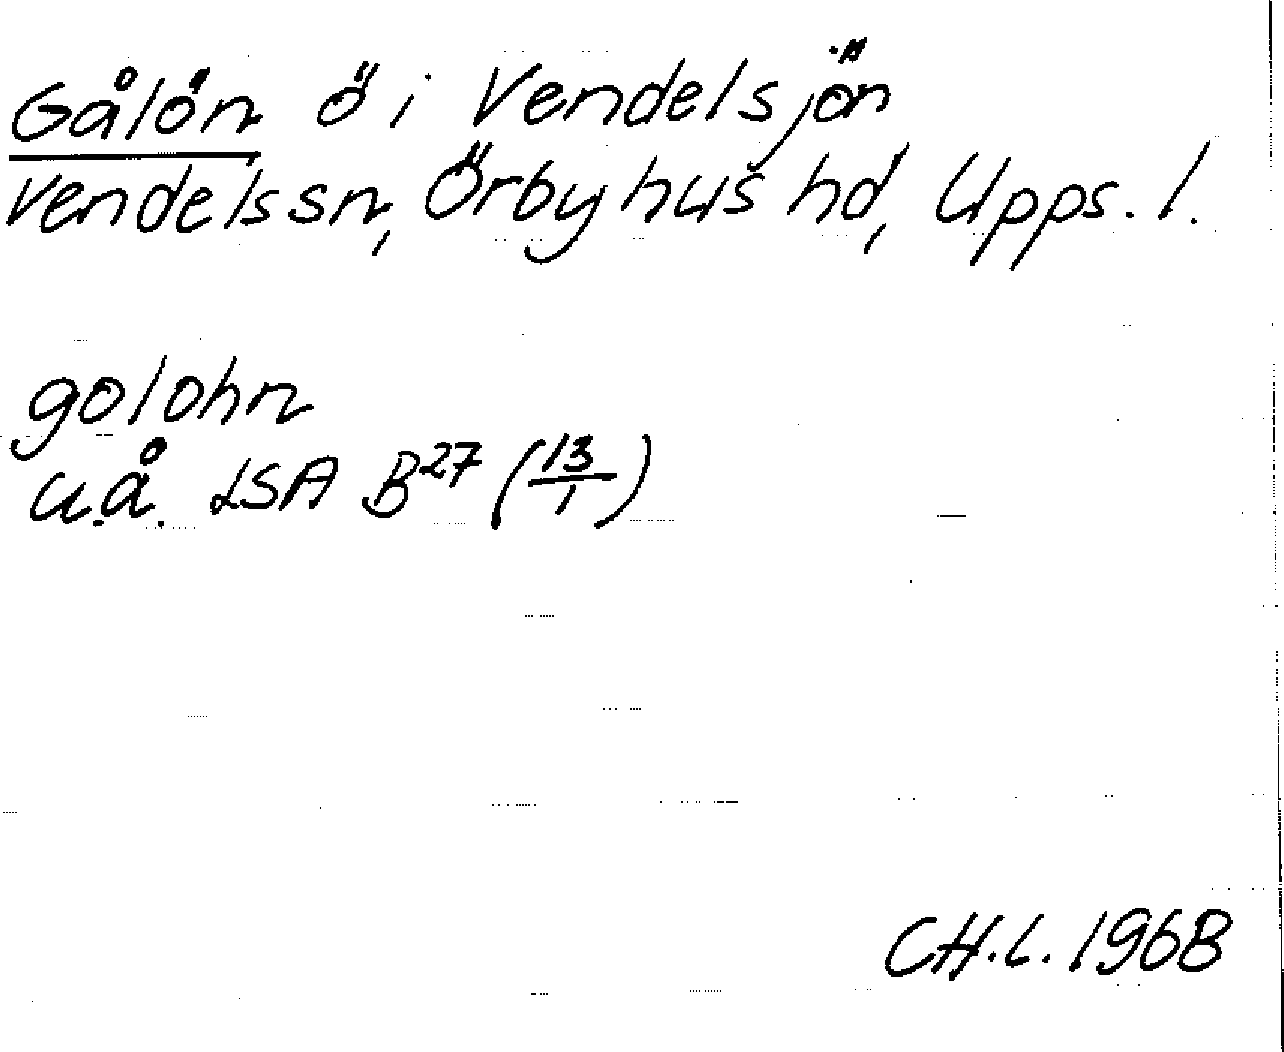 Gålön ö i Vendelsjön
Vendels sn, Örbyhus hd, Upps. l.
golohn
u.å. LSA B27 (13/1)
CH.L. 1968